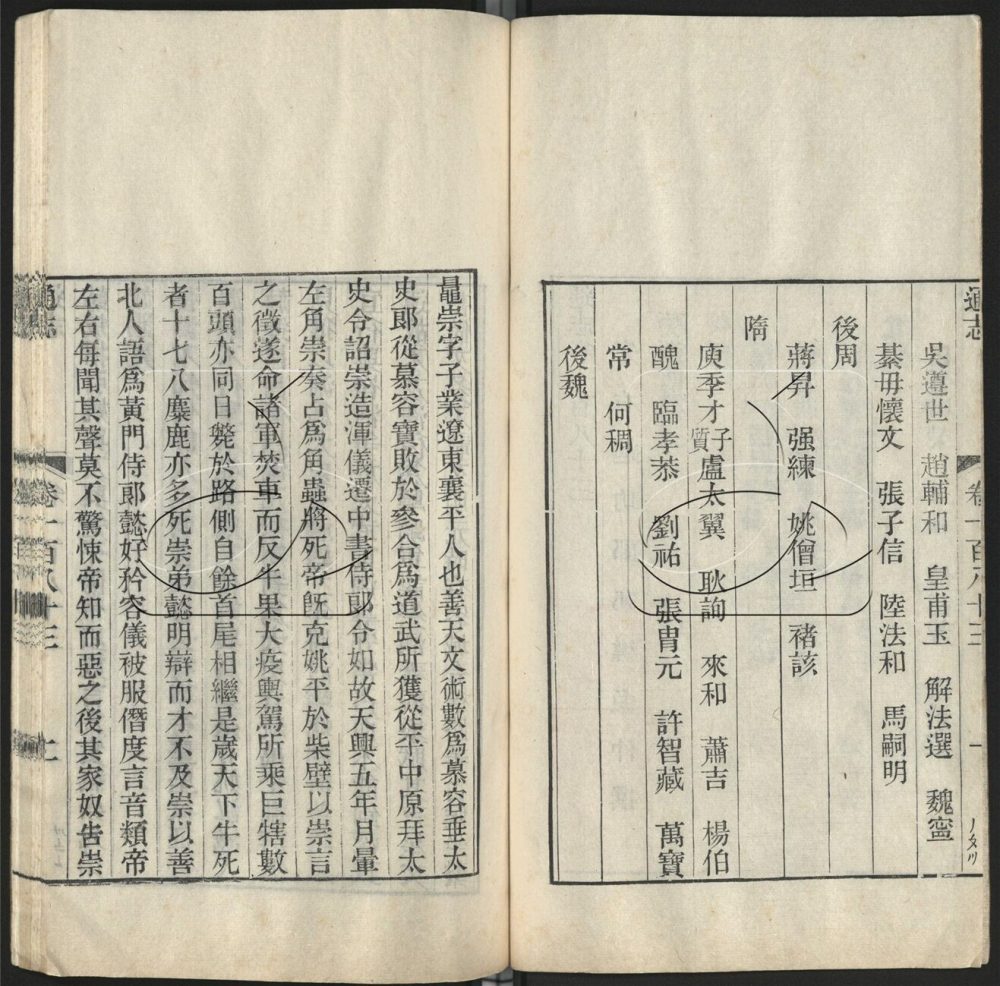 通志
卷一百八十三
一
吳遵世 趙輔和 皇甫玉 解法選 魏寧
綦毋懷文 張子信 陸法和 馬嗣明
後周
蔣昇 强練 姚僧垣 褚該
隋
庾季才子質 盧太翼 耿詢 來和 蕭吉 楊伯
醜 臨孝恭 劉祐 張胄元 許智藏 萬寶
常 何稠
後魏
鼂崇字子業遼東襄平人也善天文術數爲慕容垂太
史郎從慕容寶敗於參合爲道武所獲從平中原拜太
史令詔崇造渾儀遷中書侍郎令如故天興五年月暈
左角崇奏占爲角蟲將死帝旣克姚平於柴壁以崇言
之徵遂命諸軍焚車而反牛果大疫輿駕所乘巨犗數
百頭亦同日斃於路側自餘首尾相繼是歲天下牛死
者十七八麋鹿亦多死崇弟懿明辯而才不及崇以善
北人語爲黃門侍郎懿好矜容儀被服僭度言音類帝
左右每聞其聲莫不驚悚帝知而惡之後其家奴告崇
通志
卷一百八十三